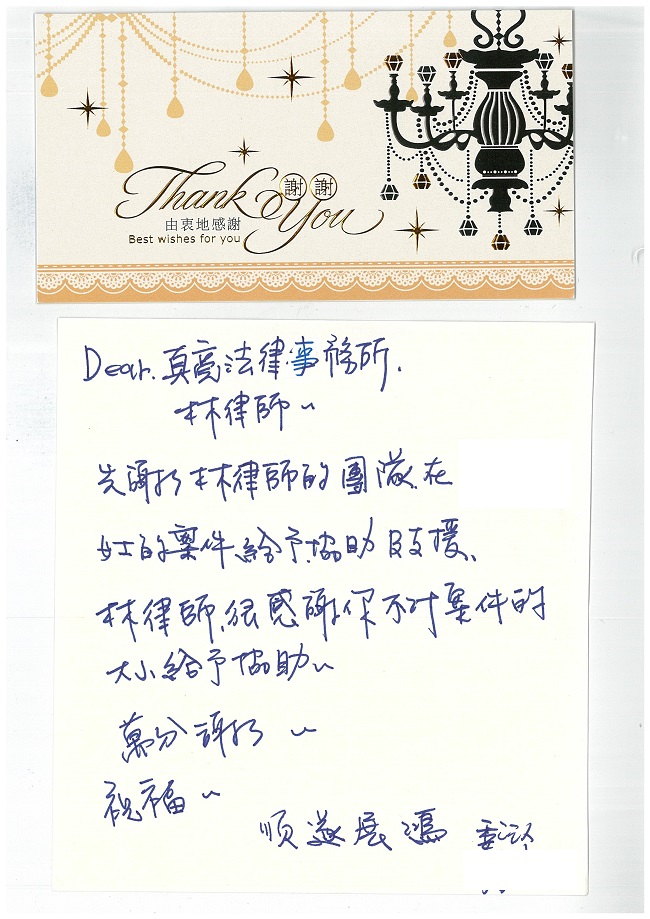 Thank You
謝謝
由衷地感謝
Best wishes for you
Dear. 真亮法律事務所.
林律師~
先謝謝林律師的團隊.在
女士的案件給予.協助及支援、
林律師.很感謝你不对案件的
大小給予協助~
萬分謝謝 ~
祝福~
順遂展鴻